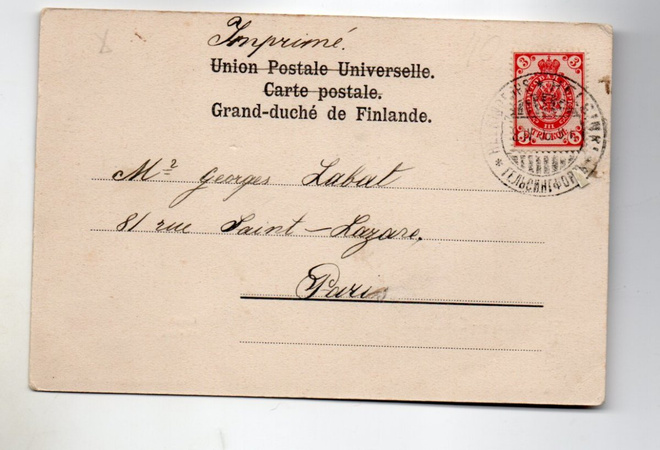 Imprimé.
Union Postale Universelle.
Carte postale.
Grand-duché de Finlande.
3 3
III
3 3
HELSINKI
ГЕЛЬСИНГФОРС
Mr Georges Labat
81 rue Saint-Lazare,
Paris